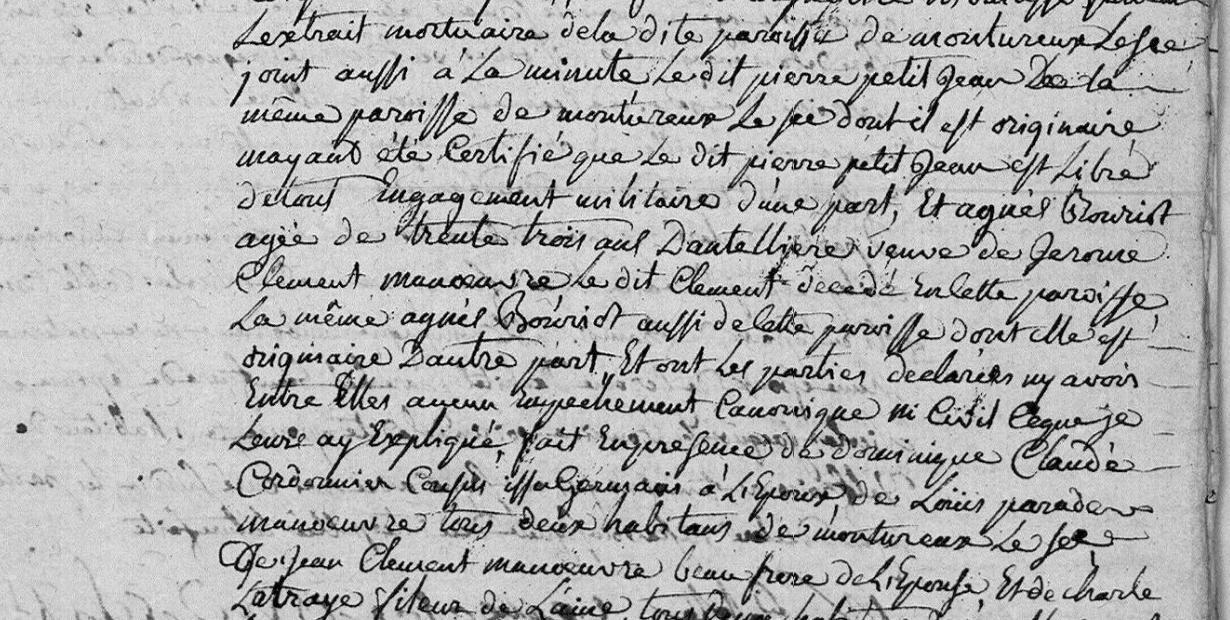 Lextrait mortuaire dela dite paroisse de montureux Le sec
joint aussi à La minute Le dit pierre petit Jean De la
même paroisse de montureux Le sec dont il est originaire
mayant été Certifié que Le dit pierre petit Jean est Libre
de tout Engagement militaire d'une part, Et agnès Bouriot
agée de trente trois ans Dantelliere veuve de Jerome
Clement manoeuvre Le dit Clement decedé En cette paroisse
La même agnès Bouriot aussi de cette paroisse dont elle est
originaire Dautre part, Et ont Les parties declarées ny avoir
Entre Elles aucun Empechement Canonique ni Civil Ceque je
Leure ay Expliqué, fait Enpresence de dominique Claude
Cordonnier Cousin issu Germain à L'Epoux de Loüis
manoeuvre tous deux habitans de montureux Le sec
De jean Clement manoeuvre beau frere de L'Epouse, Et de charle
Latraye fileur de Laine, tous deux